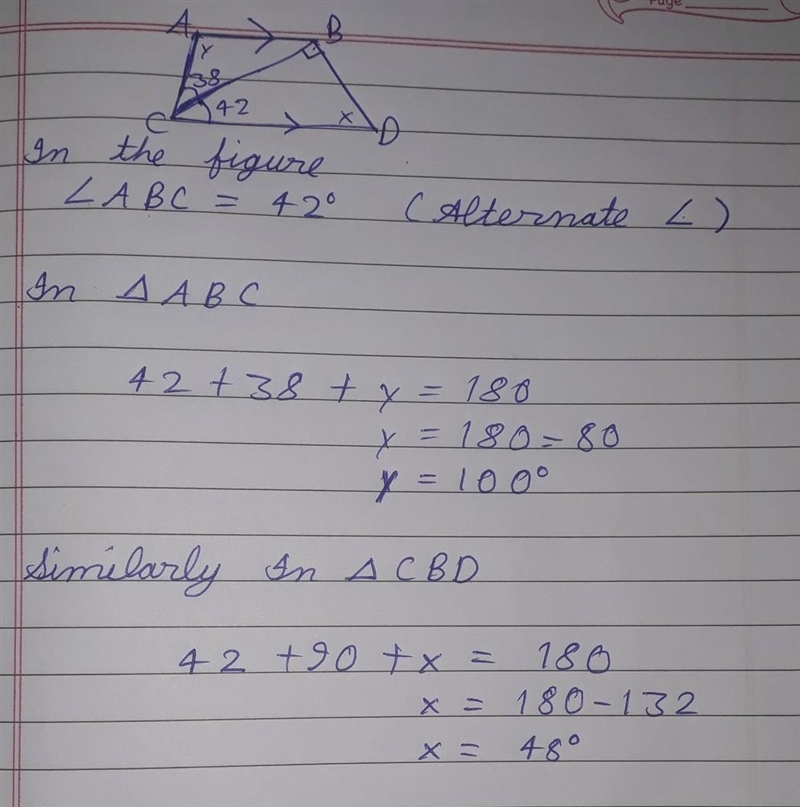 Page
A B
y
38
42
x
C D
In the figure
∠ABC = 42° (Alternate ∠)
In △ABC
42 + 38 + y = 180
y = 180 = 80
y = 100°
Similarly In △CBD
42 + 90 + x = 180
x = 180 - 132
x = 48°